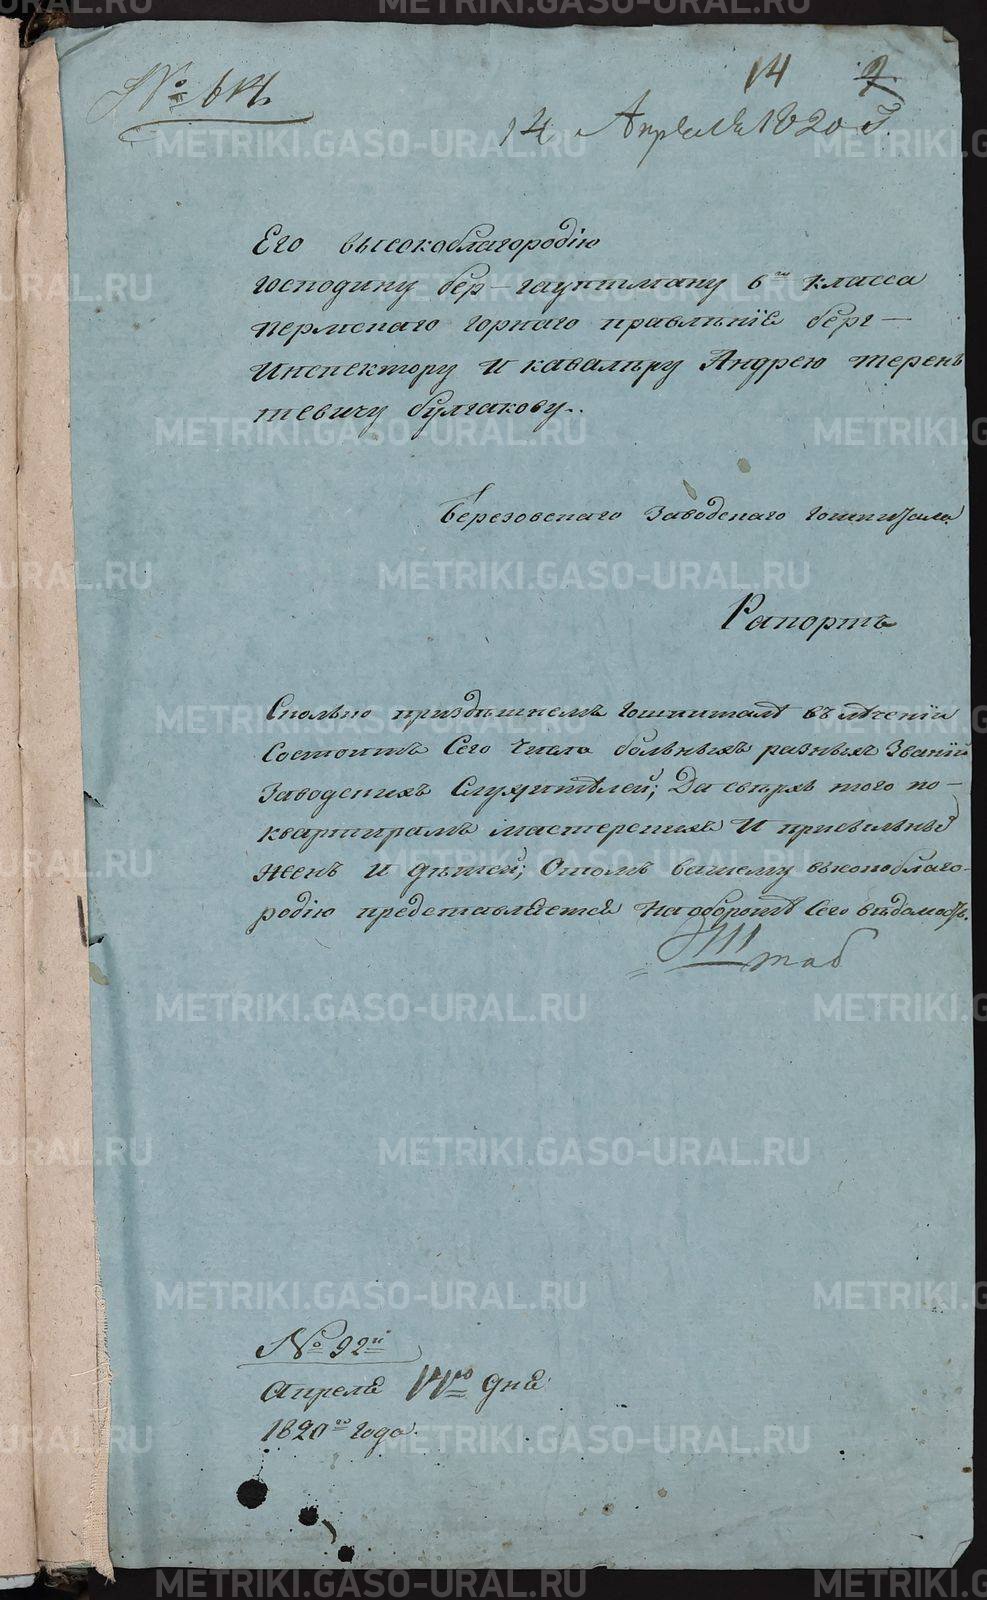 14
№ 614.
14 Апреля 1820 г.
Его высокоблагородію
господину бер-гауптману 6го класса
Пермскаго горнаго правленіе берг-
Инспектору и кавалеру Андрею терен
тевичу булгакову..
Березовскаго Заводскаго гошпиталя
Рапортъ
Сколько приздѣшнемъ гошпиталѣ въ лѣченіи
Состоитъ Сего числа больныхъ разныхъ Званій
Заводскихъ Служителей; Да свѣрхъ того по-
квартирамъ мастерскихъ и
женъ и дѣтей; Отомъ вашему высокоблаго-
родію представляется на оборотѣ Сего вѣдомость.
Штаб
№ 92й
Апреля 14го дня
1820го года.
METRIKI.GASO-URAL.RU